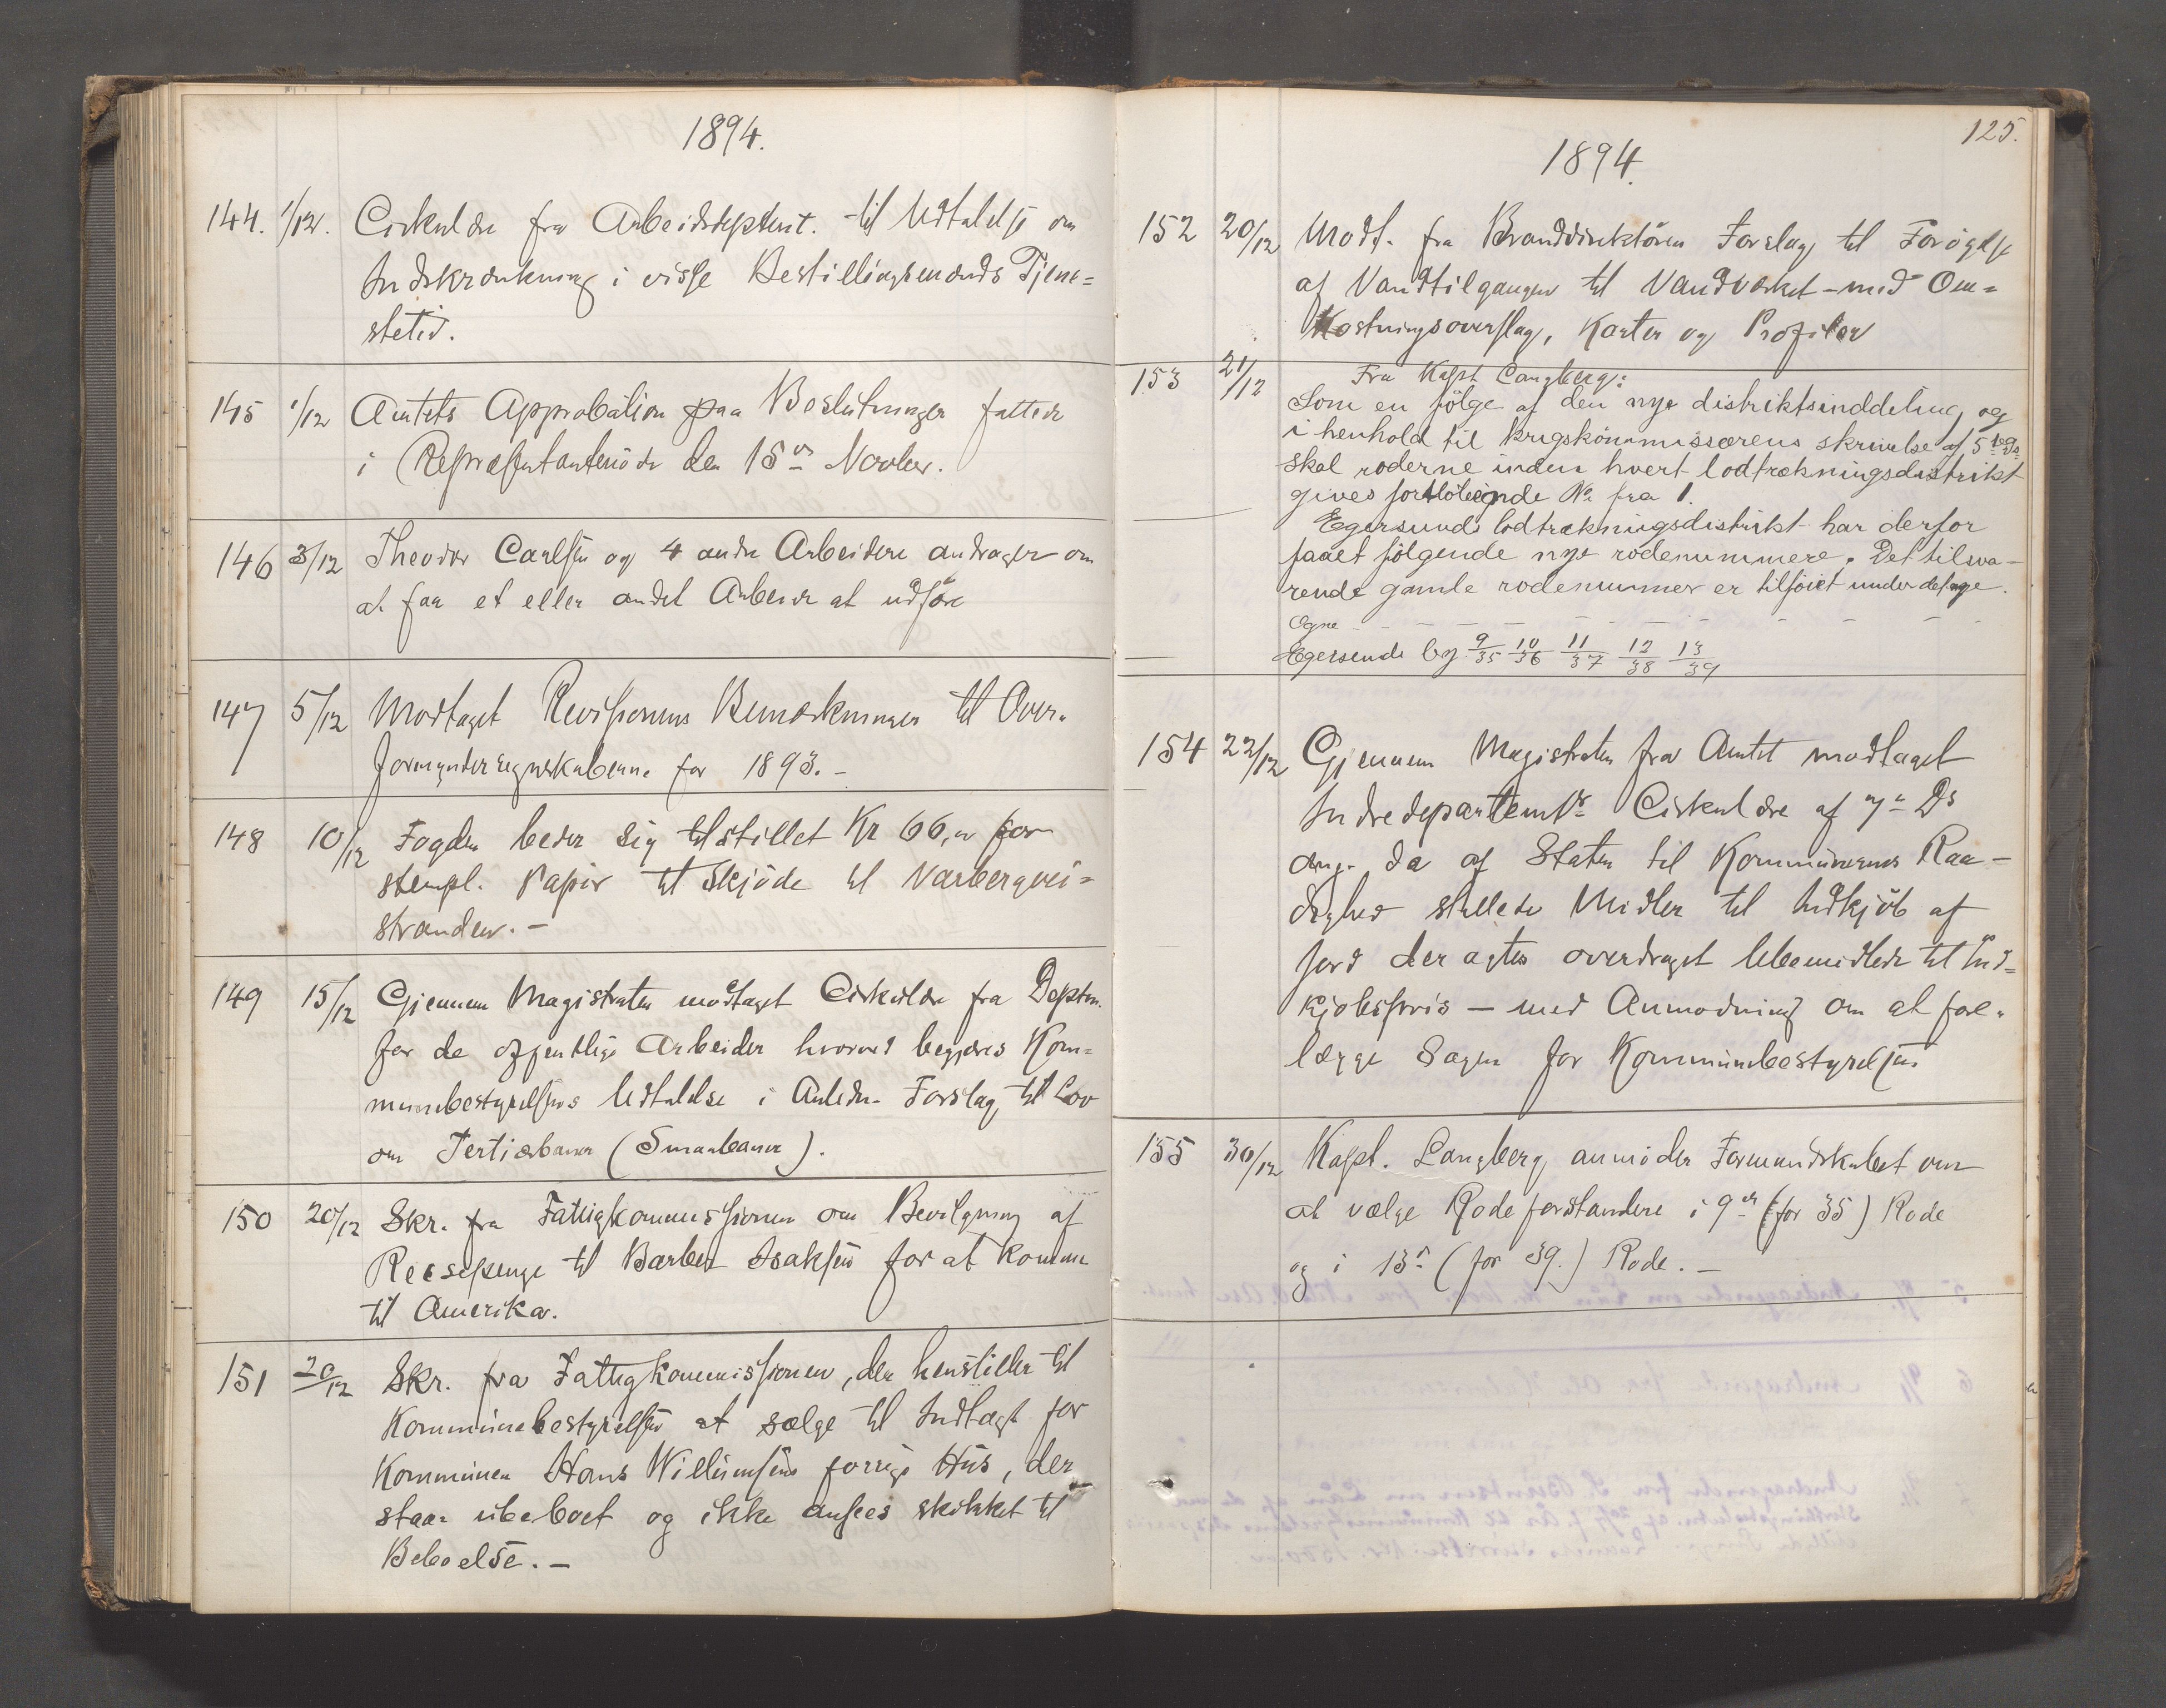 1894.
144. 1/12. Cirkulære fra Arbeidsdeptemt. til Udtalelse om
Indskrænkning i visse Bestillingsmænds Tjene=
stetid.
145 1/12 Amtets Approbation paa Beslutninger fattede
i Repræsentantmøde den 15de Novber.
146 3/12 Theodor Carlsen og 4 andre Arbeidere andrager om
at faa et eller andet Arbeide at udføre
147 5/12 Modtaget Revisionens Bemærkninger til Over-
formynderregnskaberne for 1893. -
148 10/12 Fogden beder sig tilstillet Kr 66,00 for
stempl. Papir til Skjøde til Varbergvei=
stranden. -
149 15/12 Gjennem Magistraten modtaget Cirkulære fra Deptm.
for de offentlige Arbeider hvorved begjæres Kom=
munebestyrelsens Udtalelse i Anledn. Forslag til Lov
om Tertiærbaner (Smaabaner).
150 20/12 Skr. fra Fattigkommissionen om Bevilgning af
Reisepenge til Barbert Isaksen for at komme
til Amerika.
151 20/12 Skr. fra Fattigkommissionen, der henstiller til
Kommunebestyrelsen at sælge til Indtægt for
Kommunen Hans Willumsens forrige Hus, der
staar ubeboet og ikke ansees skikket til
Beboelse. -
125.
1894.
152 20/12 Modt. fra Branddirektøren Forslag til Forøgelse
af Vandtilgangen til Vandværket - med Om=
kostningsoverslag, Karter og Profiler
153 21/12 Fra Kapt. Langberg:
Som en følge af den nye distriktsinddeling og
i henhold til krigskommissærens skrivelse af 5te Ds
skal roderne inden hvert lodtrækningsdistrikt
gives fortløbende No fra 1.
Egersunds lodtrækningsdistrikt har derfor
faaet følgende nye rodenummere. Det tilsva-
rende gamle rodenummer er tilføiet under det nye.
Ogne - - - - - - - - -
Egersunds by 9/35 10/36 11/37 12/38 13/39
154 22/12 Gjennem Magistraten fra Amtet modtaget
Indredepartemts Cirkulære af 7de Ds
ang. de af Staten til Kommunernes Raa-
dighed stillede Midler til Indkjøb af
Jord der agtes overdraget Ubemidlede til Ind=
kjøbspris - med Anmodning om at fore-
lægge Sagen for Kommunebestyrelsen
155 30/12 Kapt. Langberg anmoder Formandskabet om
at vælge Rodeforstandere i 9de (før 35) Rode
og i 13de (før 39.) Rode. -